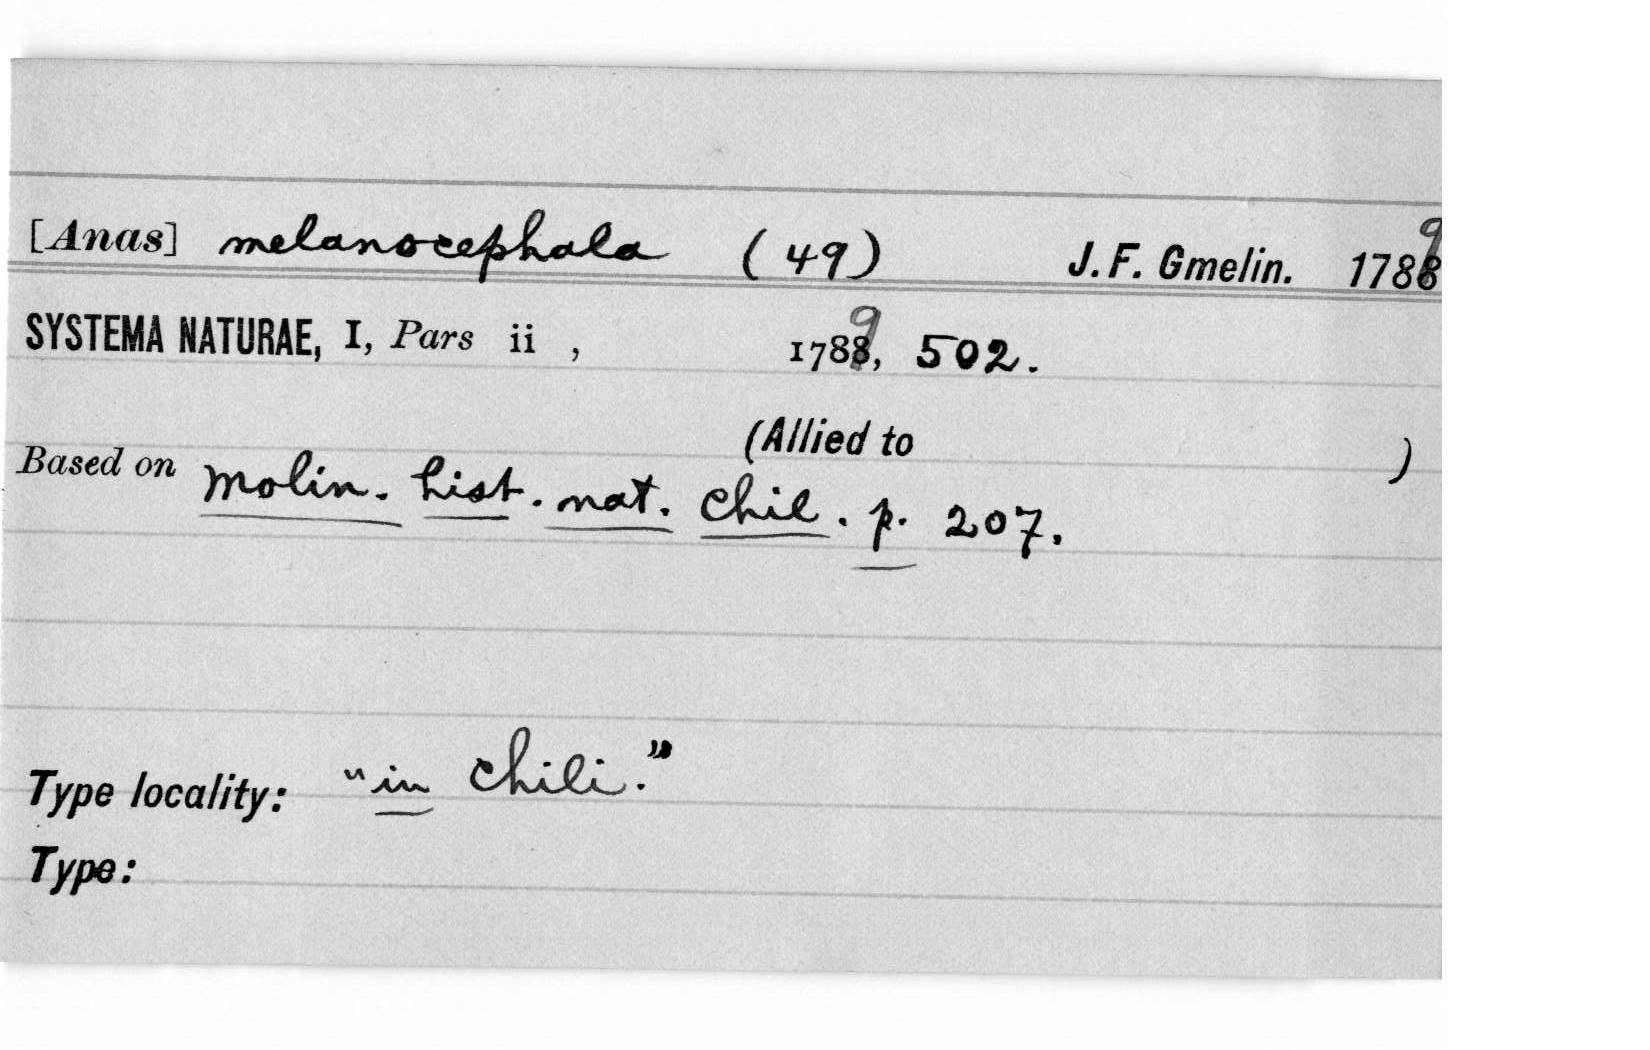 [Anas] melanocephala (49) J. F. Gmelin. 1789
SYSTEMA NATURAE, I, Pars ii , 1789, 502.
(Allied to )
Based on Molin. hist. nat. Chil. p. 207.
Type locality: "in Chili."
Type: